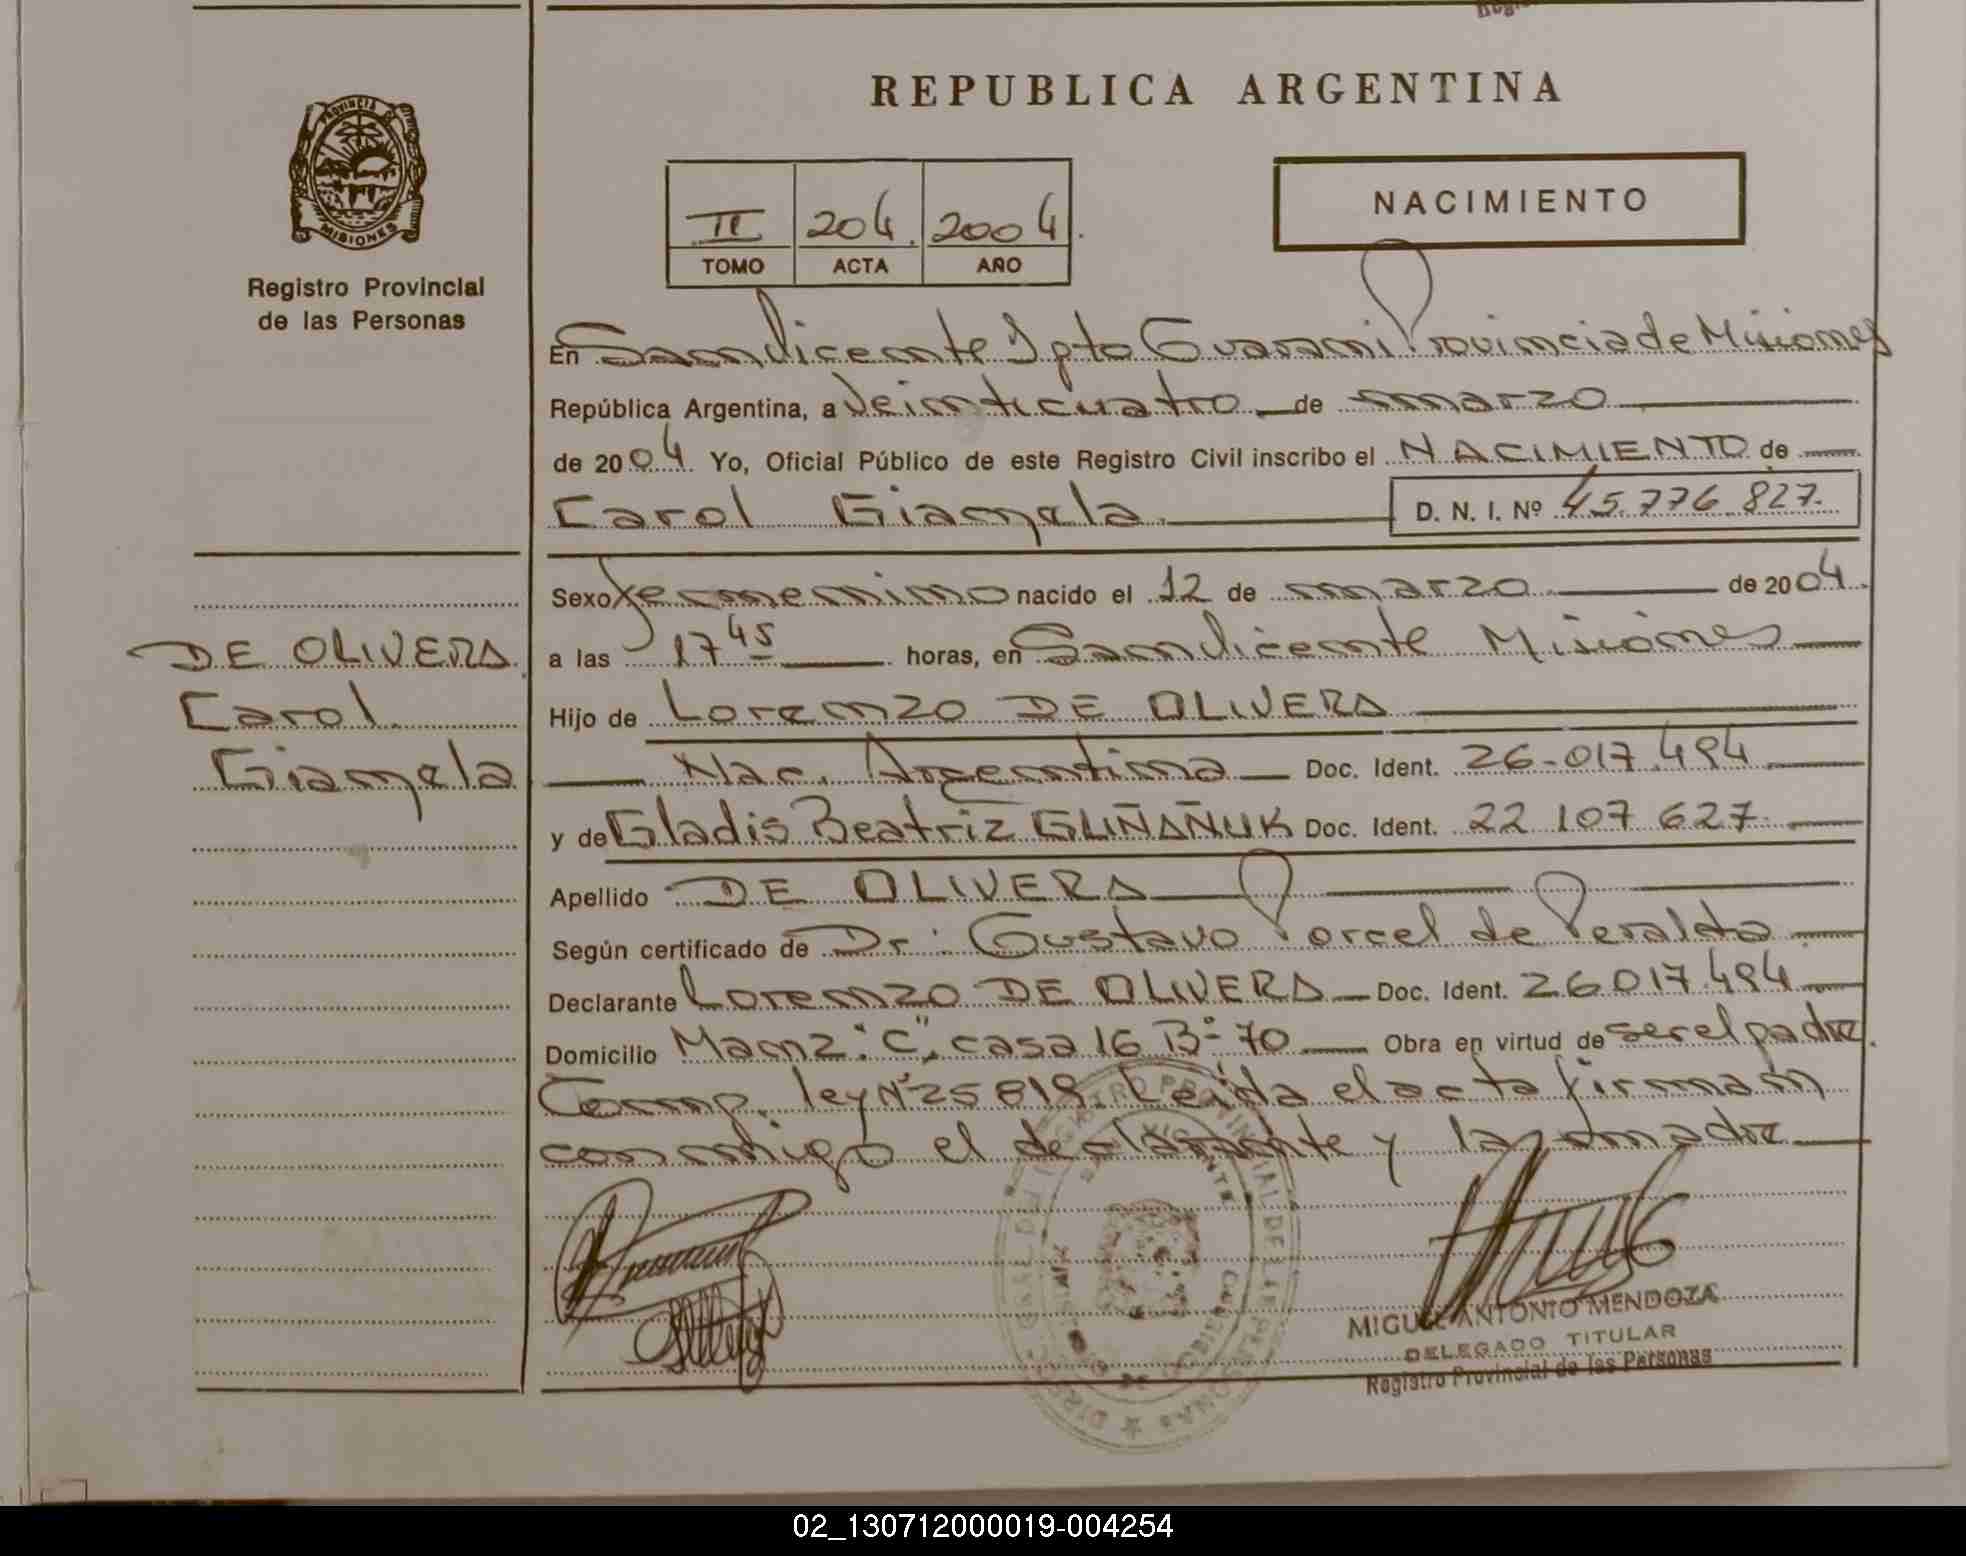 REPUBLICA ARGENTINA
PROVINCIA DE
MISIONES
Registro Provincial
de las Personas
II 204. 2004.
TOMO ACTA AÑO
NACIMIENTO
En San Vicente Dpto Guarani Provincia de Misiones
República Argentina, a Veinticuatro de marzo
de 2004 Yo, Oficial Público de este Registro Civil inscribo el NACIMIENTO de
Carol Giamela D. N. I. Nº 45.776.827.
Sexo femenino nacido el 12 de marzo de 2004.
a las 17 45 horas, en San Vicente Misiones
DE OLIVERA
Carol
Giamela
Hijo de Lorenzo DE OLIVERA
Nac. Argentina Doc. Ident. 26-017.494
y de Gladis Beatriz GLIÑAÑUK Doc. Ident. 22 107 627
Apellido DE OLIVERA
Según certificado de Dr. Gustavo Porcel de Peralta
Declarante Lorenzo DE OLIVERA Doc. Ident. 26.017.494
Domicilio Manz "C", casa 16 Bº 70 Obra en virtud de ser el padre.
Comp. ley Nº 25819. Leida el acta firman
conmigo el declarante y la madre
MIGUEL ANTONIO MENDOZA
DELEGADO TITULAR
Registro Provincial de las Personas
02_130712000019-004254